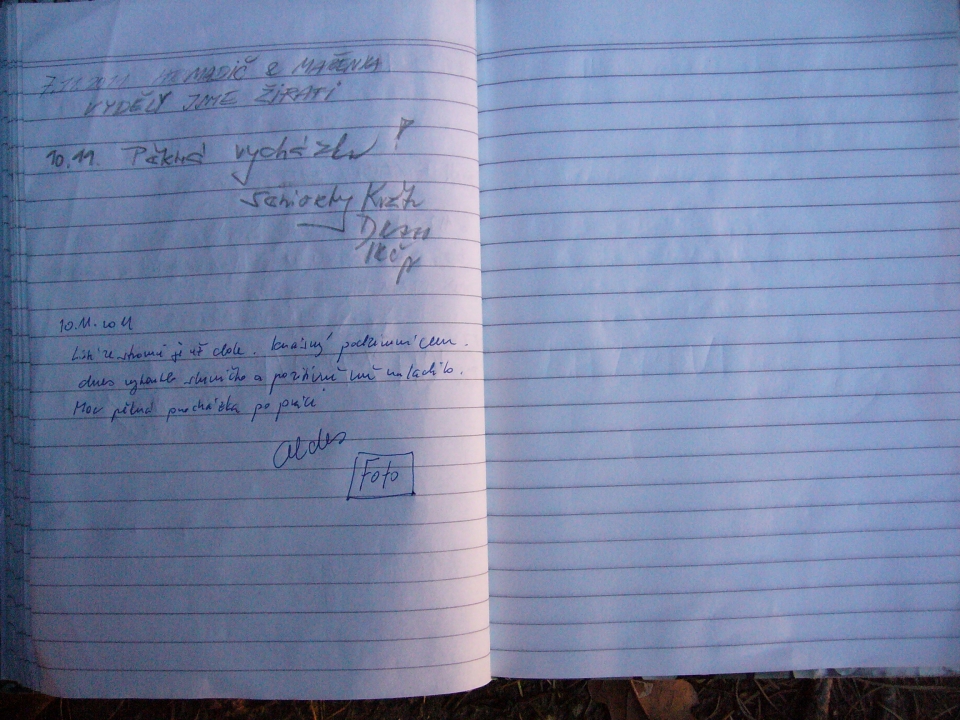 7.11.2011 MADIČ & MAŘENKA
VYDĚLY JSME ŽIRAFI
10.11. Pěkná vycházka !
seniorky
10.11.2011
Listí ze stromů je už dole. krásný podzimní den.
dnes vykouklo sluníčko a pozitivně mě naladilo.
Moc pěkná procházka po práci
aldes
Foto